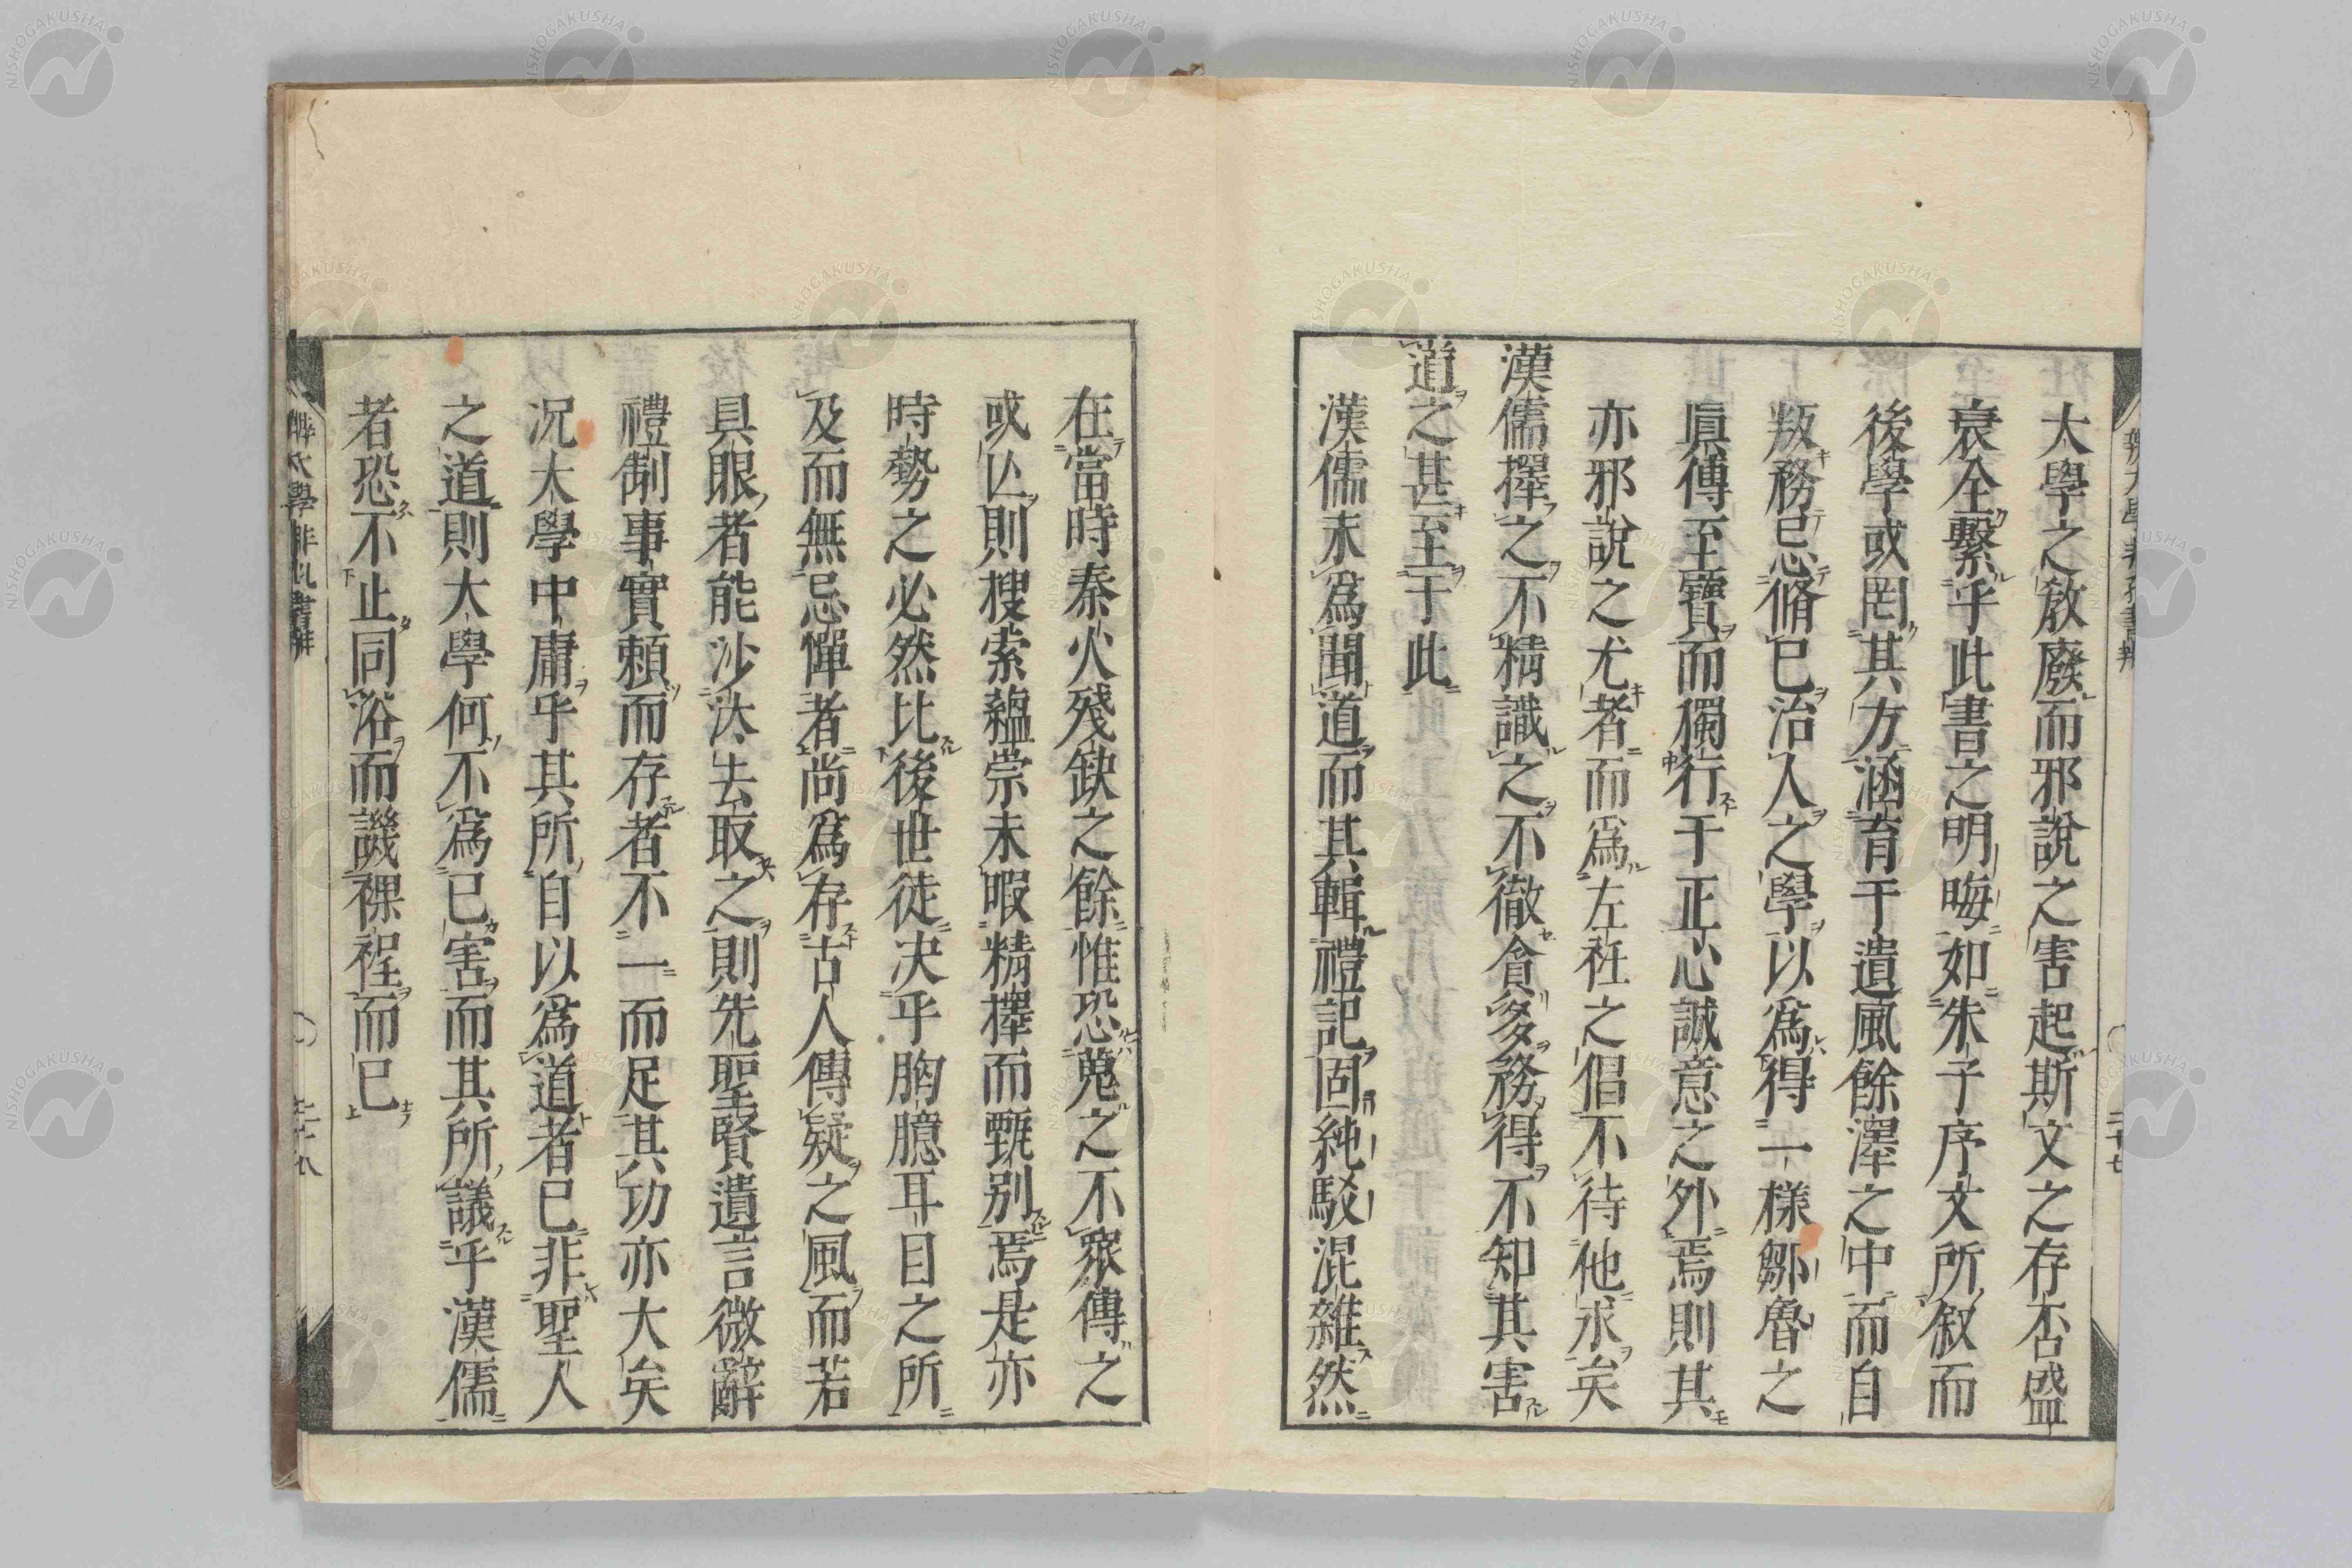 大學之敎廢而邪說之害起斯文之存否盛
衰全繫乎此書之明晦如朱子序文所叙而
後學或罔其方涵育于遺風餘澤之中而自
叛務忌脩已治人之學以爲得一樣鄒魯之
眞傳至寶而獨行于正心誠意之外焉則其
亦邪說之尤者而爲左衽之倡不待他求矣
漢儒擇之不精識之不徹貪多務得不知其害
道之甚至于此
漢儒未爲聞道而其輯禮記固純駁混雜然
在當時秦火殘缺之餘惟恐蒐之不衆傳之
或亾則搜索蘊崇未暇精擇而甄別焉是亦
時勢之必然比後世徒决乎胸臆耳目之所
及而無忌憚者尚爲存古人傳疑之風而若
具眼者能沙汰去取之則先聖賢遺言微辭
禮制事實頼而存者不一而足其功亦大矣
况大學中庸乎其所自以爲道者已非聖人
之道則大學何不爲已害而其所議乎漢儒
者恐不止同浴而譏裸裎而已
辨大學非孔書辨
二十七
辨大學非孔書辨
二十八
NISHOGAKUSHA